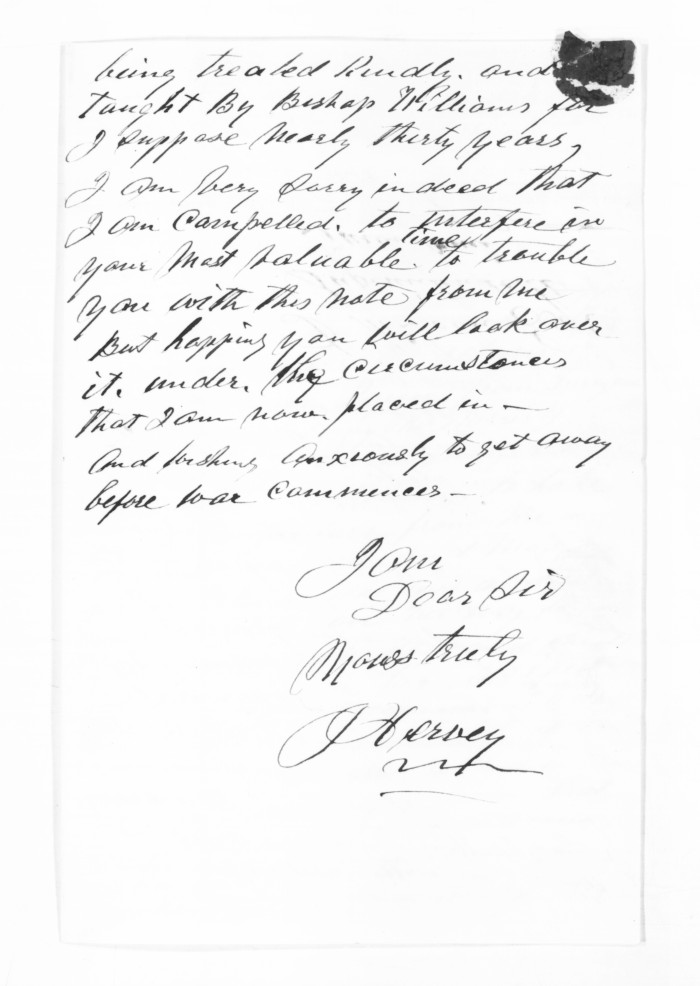 being treated Kindly. and
taught By Bishop Williams for
I suppose nearly thirty years,
I am very sorry indeed that
I am compelled. to interfere in
your most valuable time to trouble
you with this note from me
But hopping you will look over
it. under. the circumstances
that I am now. placed in —
and wishing anxiously to get away
before war commences —
I am
Dear Sir
Yours truly
J Hervey